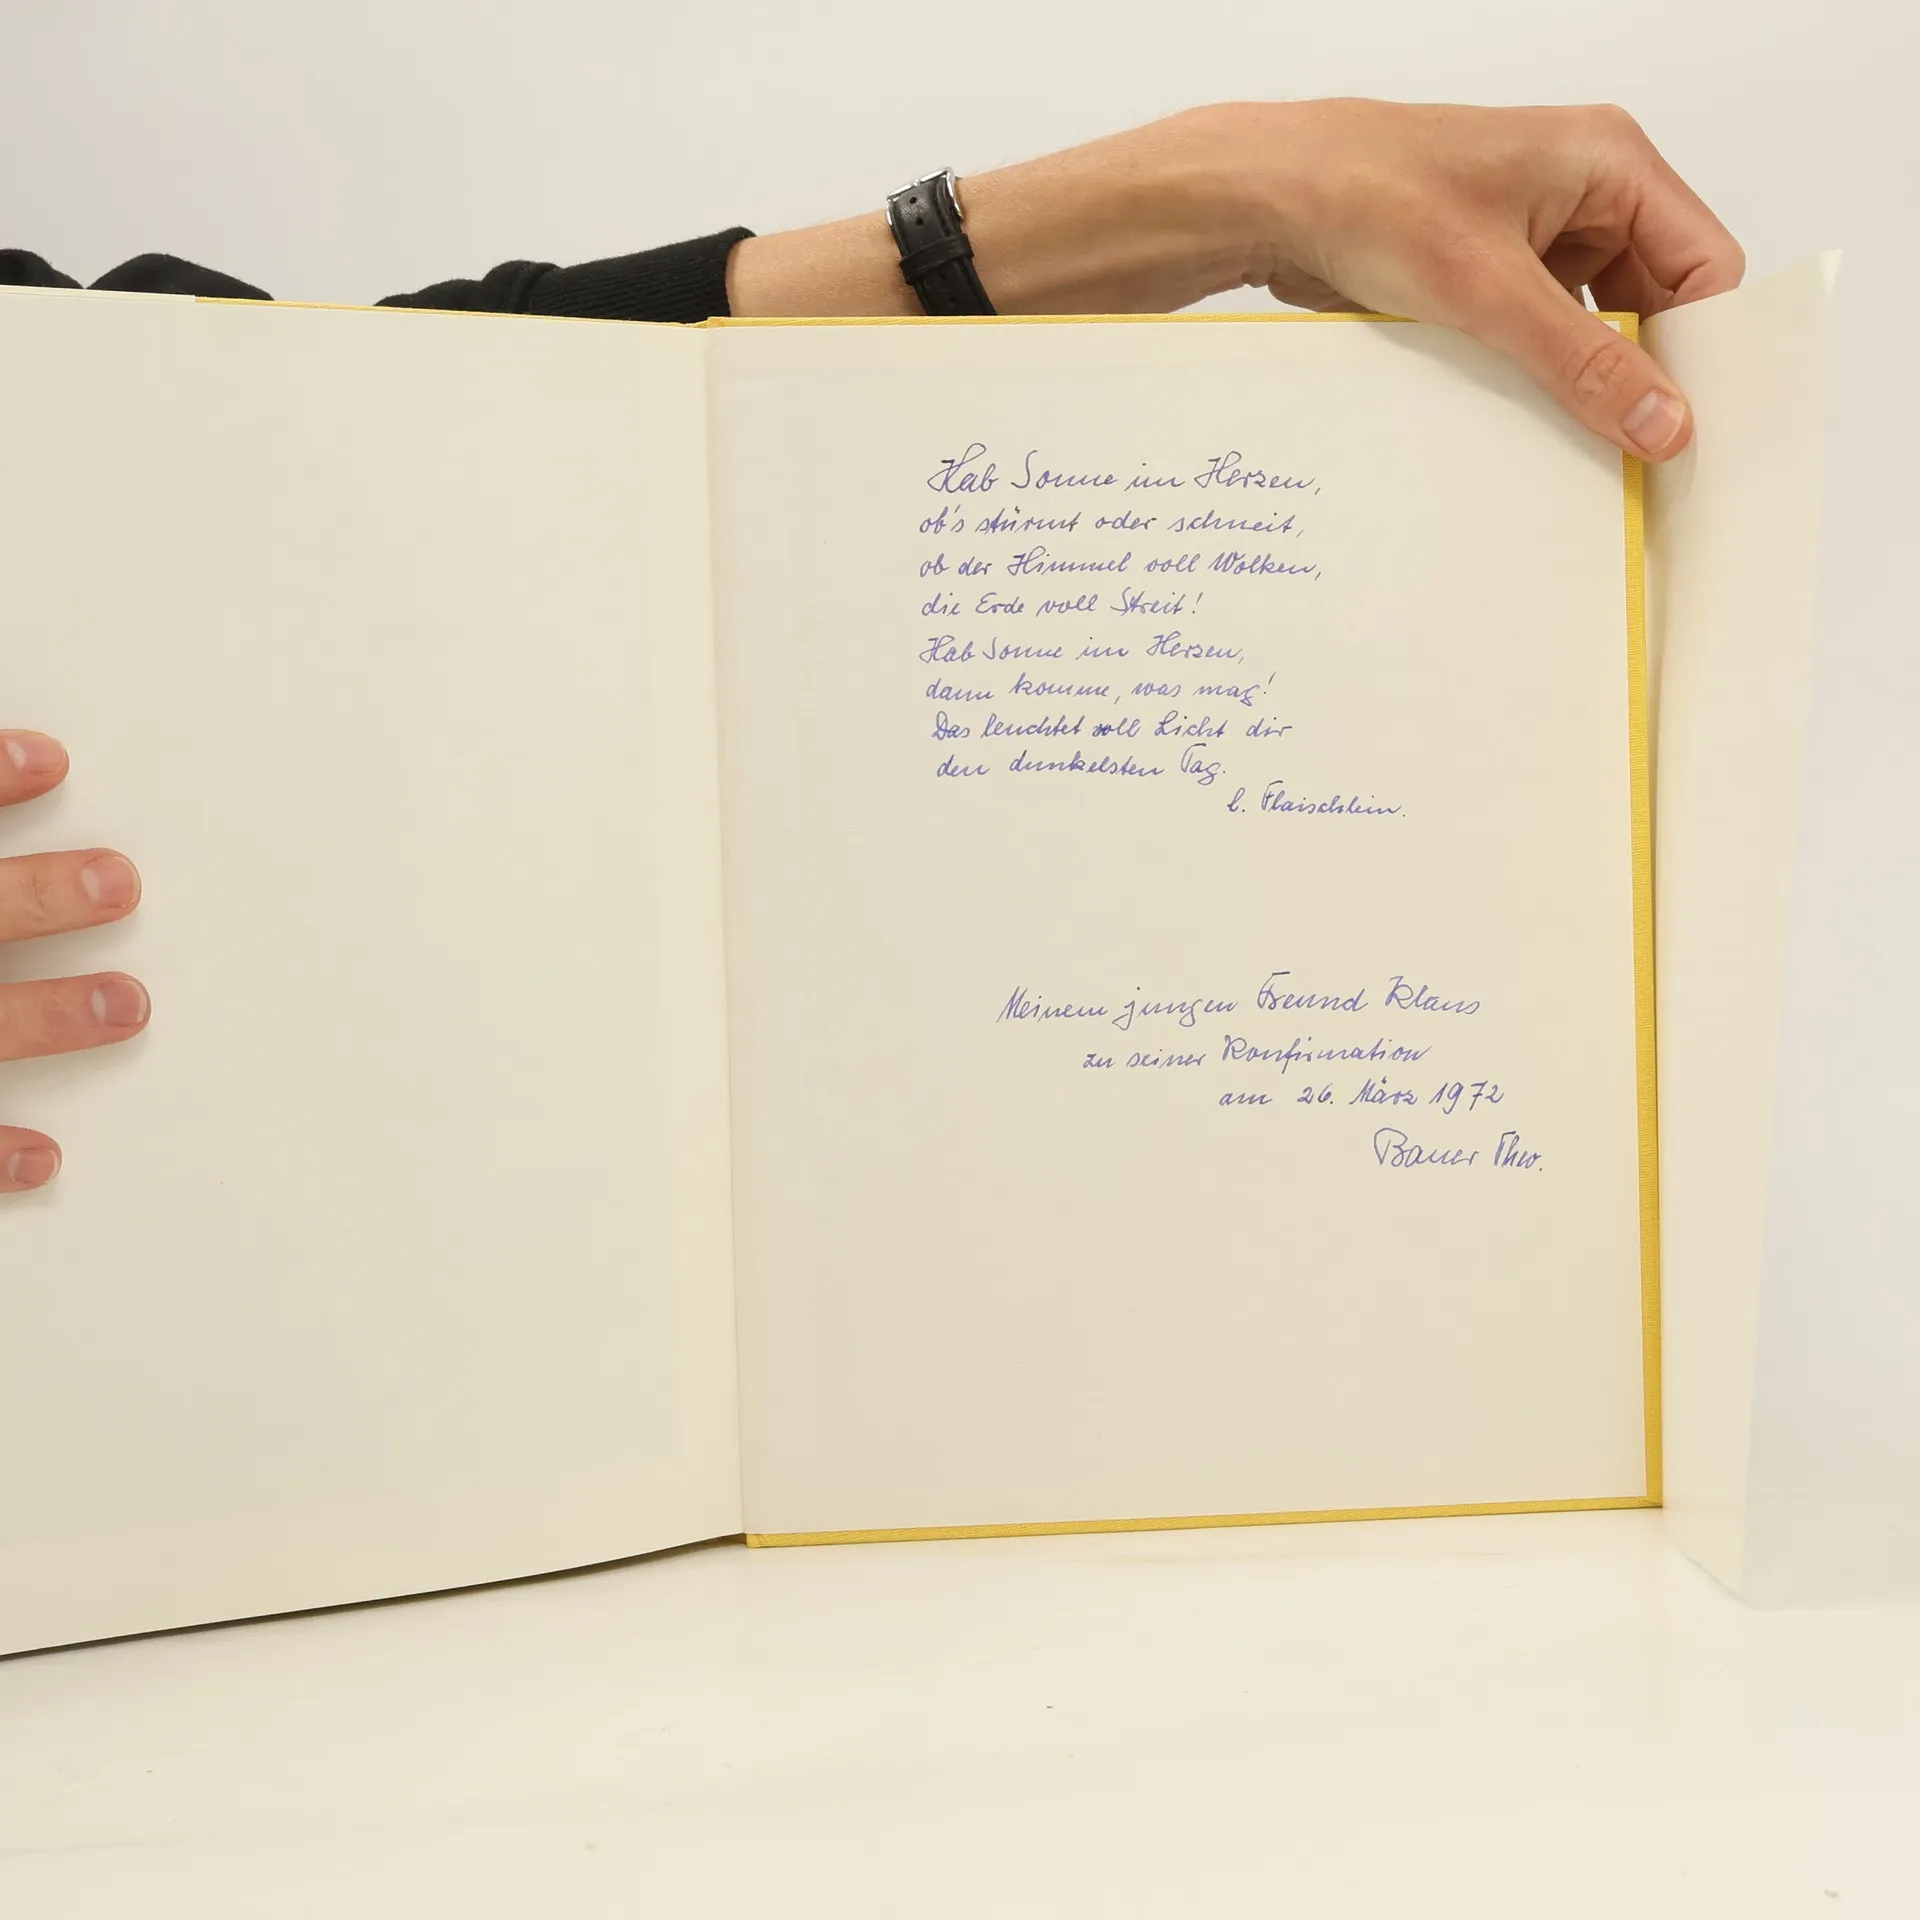 Hab Sonne im Herzen,
ob's stürmt oder schneit,
ob der Himmel voll Wolken,
die Erde voll Streit!
Hab Sonne im Herzen,
dann komme, was mag!
Das leuchtet voll Licht dir
den dunkelsten Tag.
C. Flaischlein.
Meinem jungen Freund Klaus
zu seiner Konfirmation
am 26. März 1972
Bauer Theo.